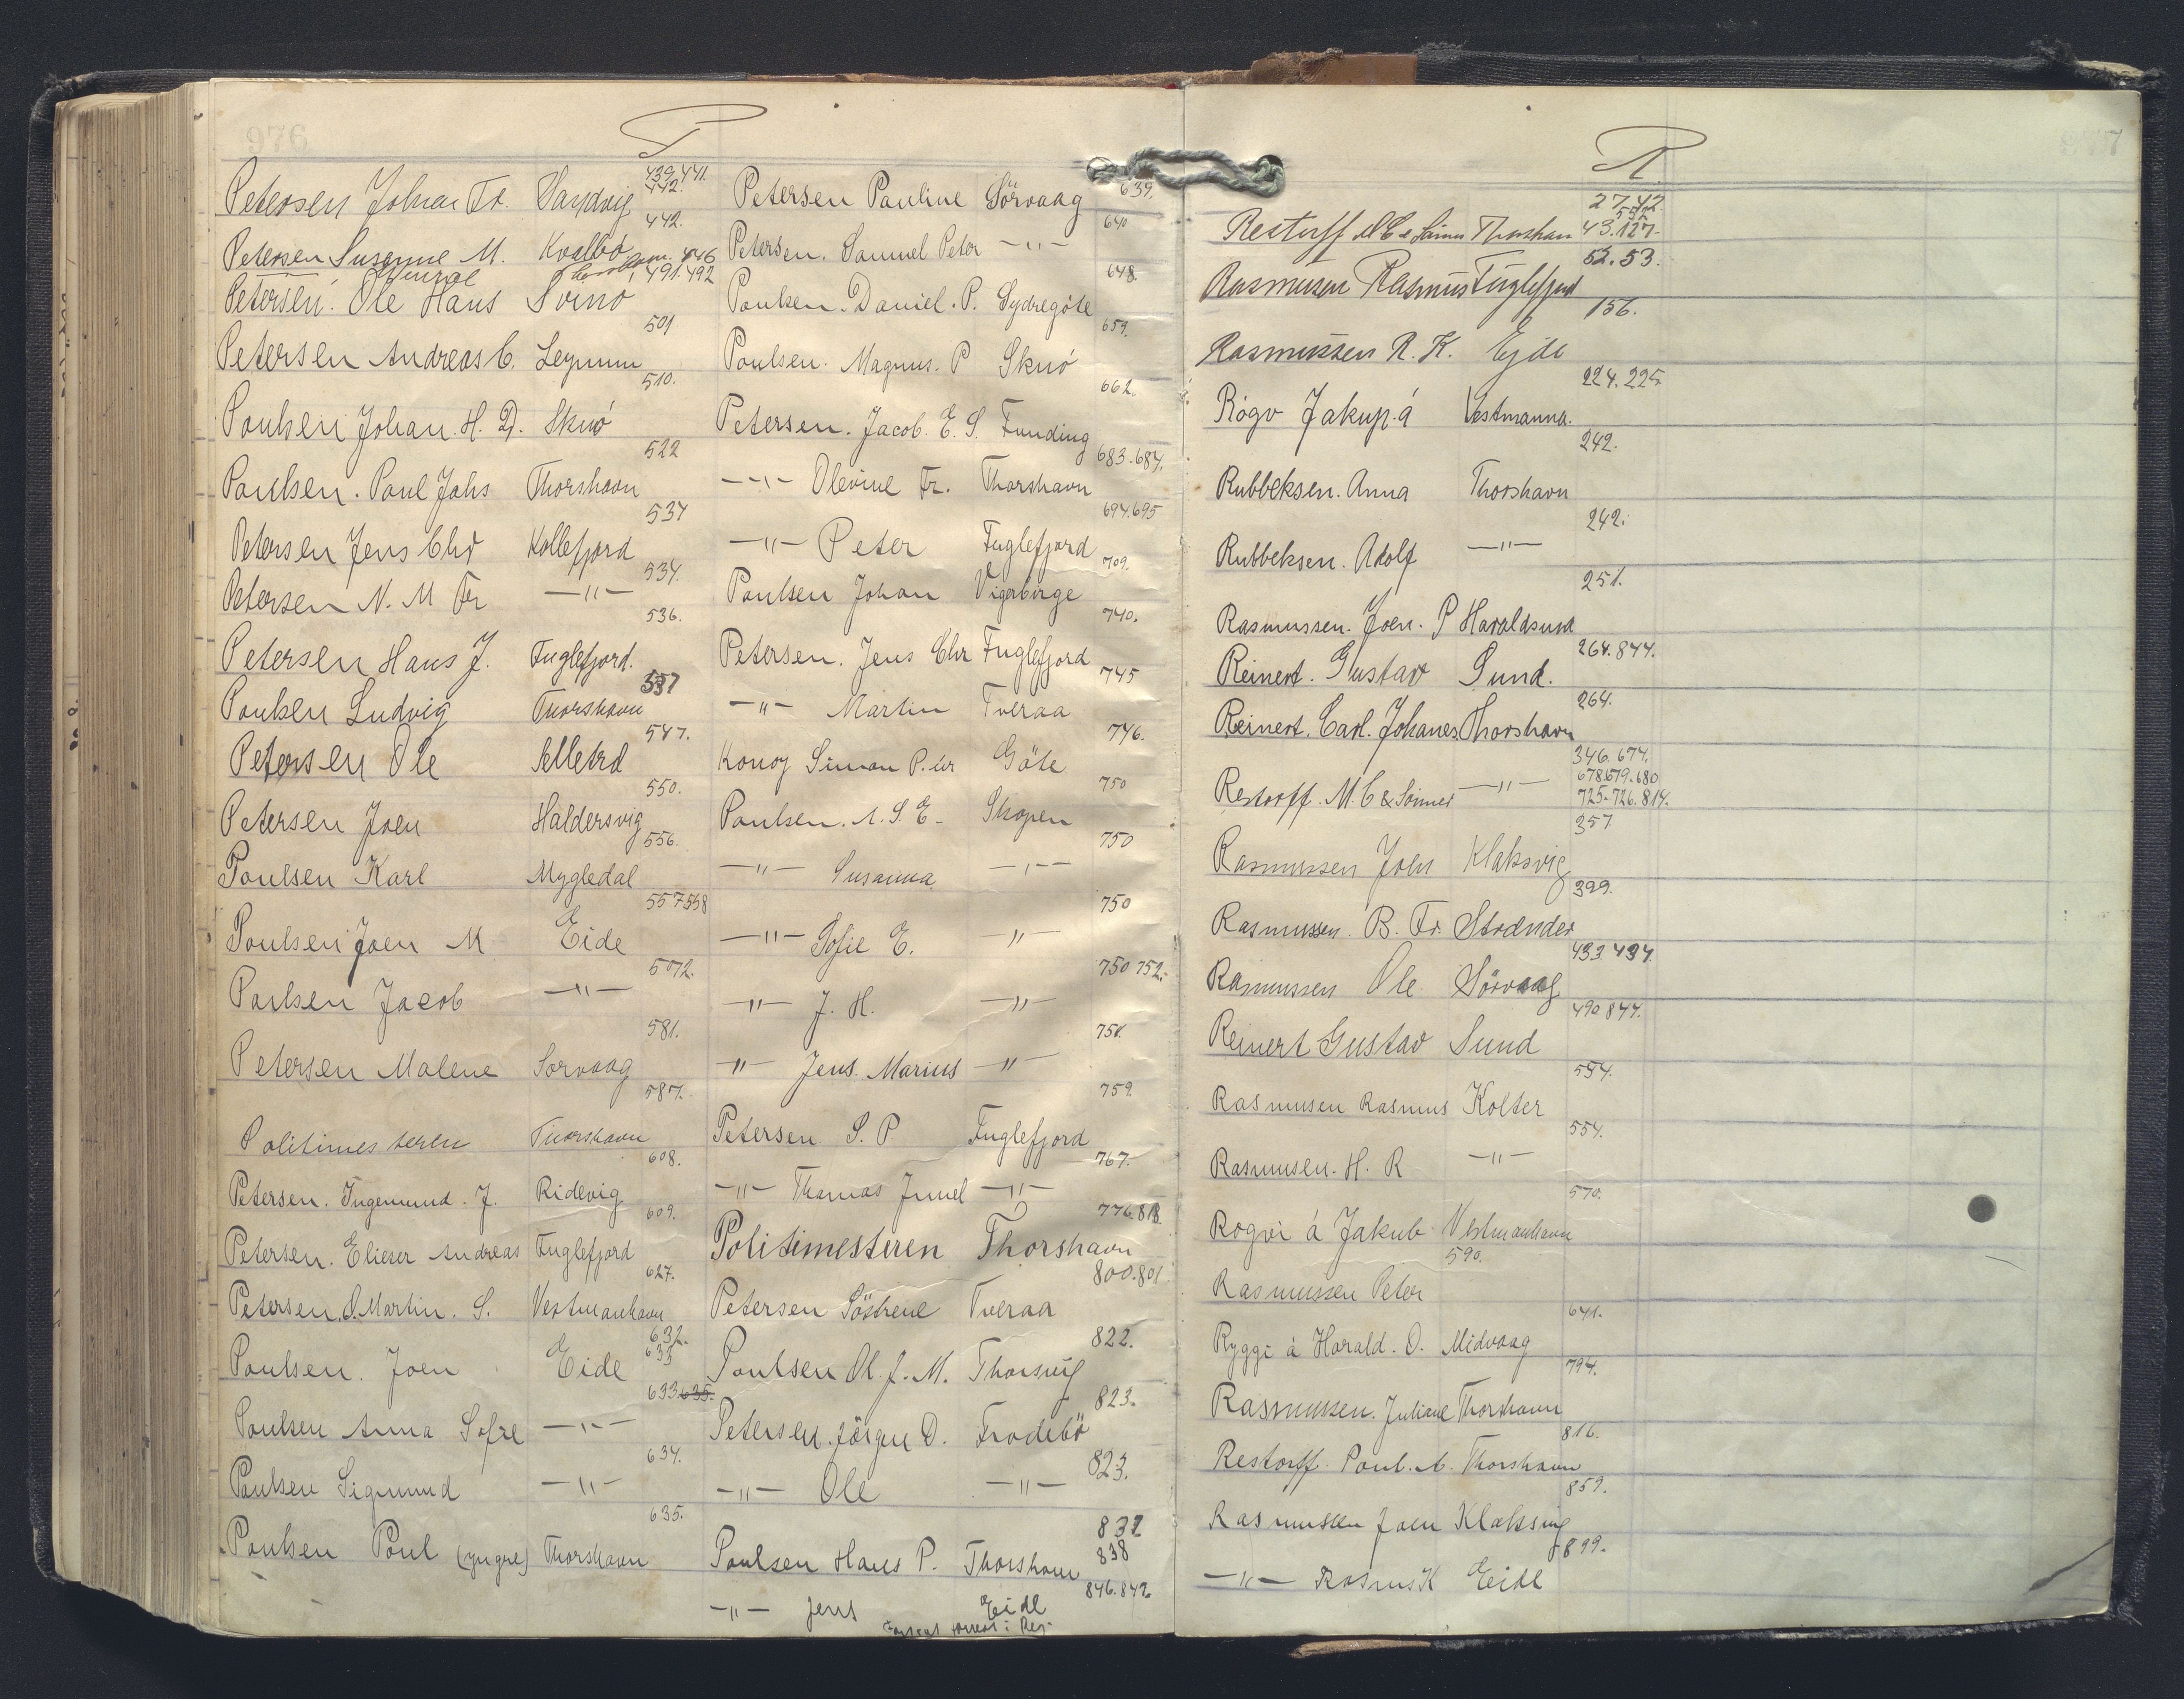 976
P
Petersen Johan Fr. Sandvig 439.441. 442.
Petersen Susanne M. Kvalbö 442.
Petersen. Ole Hans Svinö 446 491.492
Petersen Andreas C. Leynum 501
Poulsen Johan. H. D. Skuö 510.
Poulsen. Poul Johs Thorshavn 522
Petersen Jens Chr Kollefjord 534
Petersen N. M Fr —"— 534.
Petersen Hans J. Fuglefjord. 536.
Poulsen Ludvig Thorshavn 537
Petersen Ole Selletrd 547.
Petersen Joen Haldersvig 550.
Poulsen Karl Mygledal 556.
Poulsen Joen M Eide 557 558
Poulsen Jacob —"— 572.
Petersen Malene Sorvaag 581.
Politimesteren Thorshavn 587.
Petersen. Ingemund. J. Ridevig 608.
Petersen. Elieser Andreas Fuglefjord 609.
Petersen. O. Martin. S. Vestmanhavn 627.
Poulsen. Joen Eide 632. 633
Poulsen Anna Sofie —"— 633. 635.
Poulsen Sigmund —"— 634.
Poulsen Poul (yngre) Thorshavn 635.
Petersen Pauline Sörvaag 639.
Petersen. Samuel Peter —"— 640
Poulsen. Daniel. P. Sydregöte 648.
Poulsen. Magnus. P Skuö 659.
Petersen. Jacob. E. S. Funding 662.
—"— Olevine Fr. Thorshavn 683.684.
—"— Peter Fuglefjord 694.695
Poulsen Johan Vigerbirge 709.
Petersen. Jens Chr Fuglefjord 740.
—"— Martin Tveraa 745
Konoy Simon P. Göte 746.
Poulsen. A. S. E. Skopen 750
—"— Susanna —"— 750
—"— Sofie E. —"— 750
—"— J. H. —"— 750 752.
—"— Jens. Marius —"— 751.
Petersen S. P. Fuglefjord 759.
—"— Thomas Juul —"— 767.
Politimesteren Thorshavn 776.818.
Petersen Söstrene Tveraa 800.801
Poulsen Ol. J. M. Thorsvig 822.
Petersen. Jörgen D. Frodebö 823.
—"— Ole —"— 823.
Poulsen Hans P. Thorshavn 832 838
—"— Jens Eide 846.847.
R
Restorff M C & Sönner Thorshavn 27.42 552 43.127.
Rasmussen Rasmus Fuglefjord 52.53.
Rasmussen R. K. Ejde 156.
Rógv Jakup. á Vestmanna. 224.225.
Rubbeksen. Anna Thorshavn 242.
Rubbeksen. Adolf —"— 242.
Rasmussen. Joen. P Haraldsund 251.
Reinert. Gustav Sund. 264.844.
Reinert. Carl. Johanes Thorshavn 264.
Restorff. M. C & Sönner —"— 346.674. 678.679.680 725-726.814.
Rasmussen Joen Klaksvig 357
Rasmussen. B. Fr. Strænder 399.
Rasmussen Ole Sörvaag 433 434
Reinert Gustav Sund 490 844.
Rasmusen Rasmus Kolter 554.
Rasmusen. H. R —"— 554.
Rogvi á Jakub Vestmanhavn 570.
Rasmussen Peter 590.
Ryggi á Harald. O. Midvaag 641.
Rasmussen. Juliane Thorshavn 794.
Restorff. Poul. A. Thorshavn 816.
Rasmussen Joen Klaksvig 859.
—"— Rasmus K Eide 899.